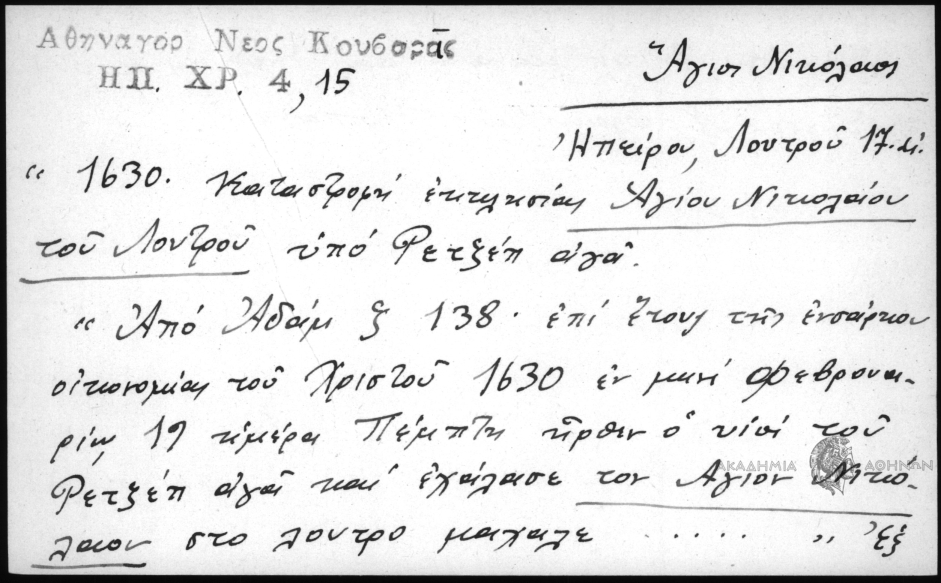 Αθηναγόρ Νεος Κουβαρᾶς
ΗΠ. ΧΡ. 4, 15
Ἅγιος Νικόλαος
Ἠπείρου, Λουτροῦ 17.αἰ.
“ 1630. Καταστροφή ἐκκλησίας Ἁγίου Νικολάου
τοῦ Λουτροῦ ὑπό Ρετζέπ ἀγᾶ.
“ Ἀπό Ἀδάμ ξ 138. ἐπί ἔτους τῆς ἐνσάρκου
οἰκονομίας τοῦ Χριστοῦ 1630 ἐν μηνί Φεβρουα-
ρίῳ 19 ἡμέρα Πέμπτη ἦρθεν ὁ υἱός τοῦ
ΑΚΑΔΗΜΙΑ ΑΘΗΝΩΝ
Ρετζέπ ἀγᾶ καί ἐχάλασε τον Αγιον Νικό-
λαον στο λουτρο μαχαλε ..... „ Ἐξ